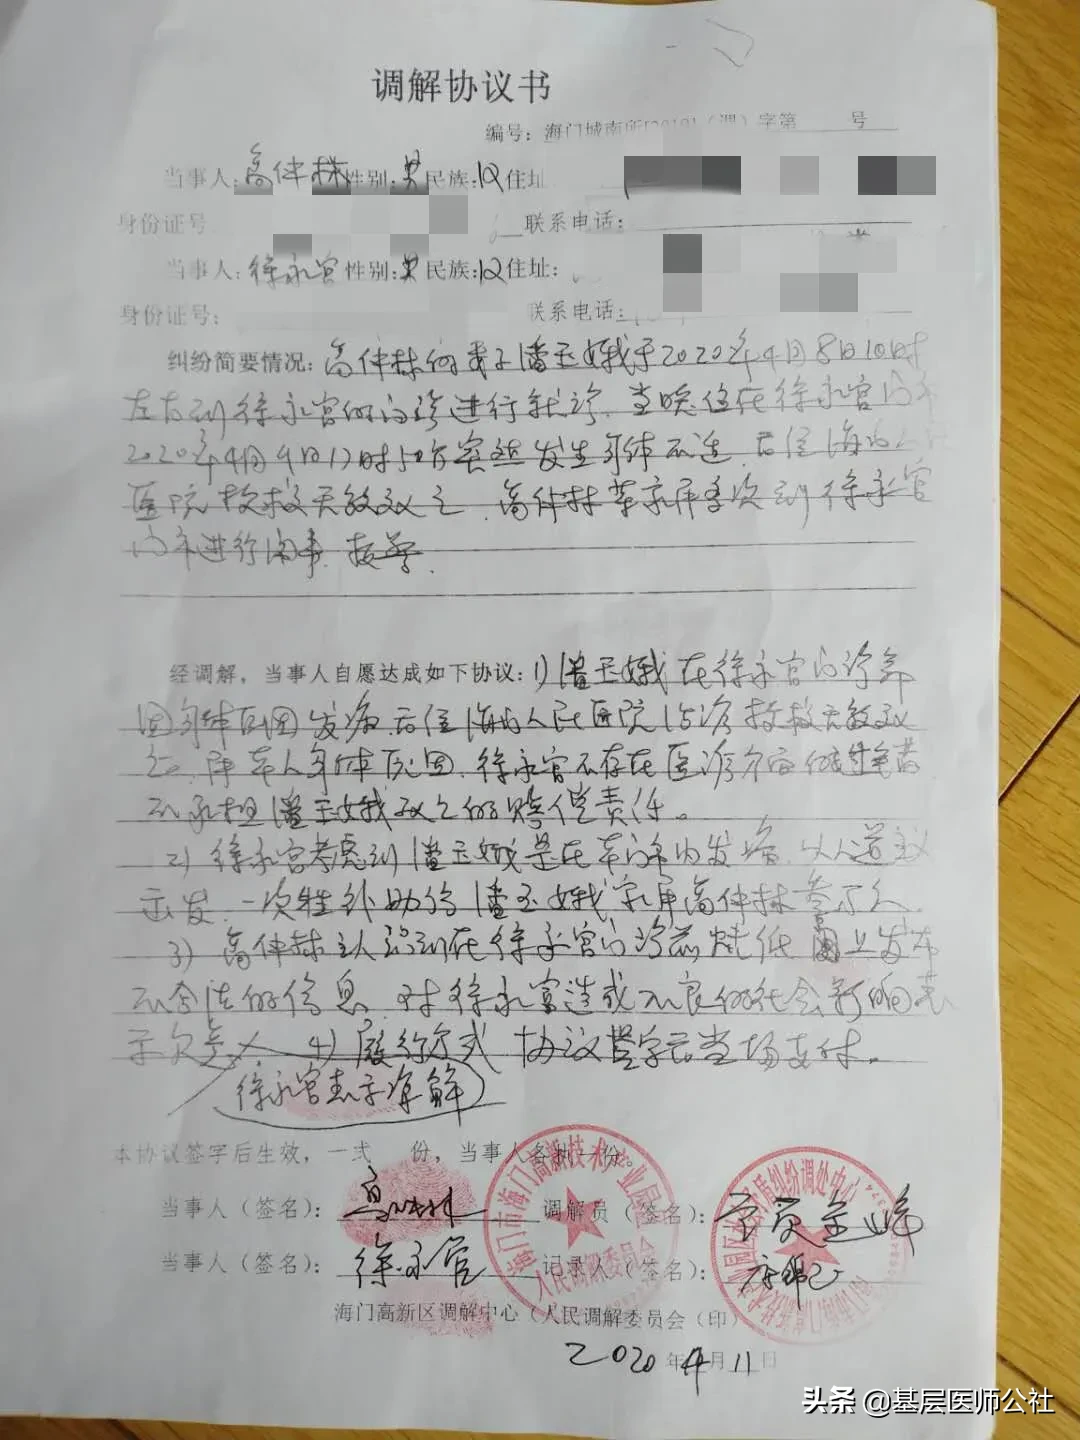 调解协议书
编号：海门城南所[2019]（调）字第 号
当事人：高仲林性别：男民族：汉住址
身份证号 联系电话：
当事人：徐永官性别：男民族：汉住址：
身份证号： 联系电话：
纠纷简要情况：高仲林的妻子潘玉娥于2020年4月8日10时
左右到徐永官的门诊进行就诊，当晚住在徐永官门市
2020年4月9日17时50分突然发生身体不适，后经海门人民
医院抢救无效死亡，高仲林等家属多次到徐永官
门市进行闹事
经调解，当事人自愿达成如下协议：1）潘玉娥在徐永官门诊部
因身体原因发病，后经海门人民医院治疗抢救无效死
亡，属本人身体原因，徐永官不存在医疗方面的过错
不承担潘玉娥死亡的赔偿责任。
2）徐永官考虑到潘玉娥是在本门市内发病，从人道主义
出发，一次性补助给潘玉娥家属高仲林叁万元
3）高仲林主人认识到在徐永官门诊前烧纸 网上发布
不合法的信息，对徐永官造成不良的社会影响表
示欠意，4）履行方式 协议签字后当场支付。
徐永官表示谅解
本协议签字后生效，一式 份，当事人各执一份。
当事人（签名）：高仲林 调解员（签名）：
当事人（签名）：徐永官 记录人（签名）：
海门高新区调解中心（人民调解委员会（印）
2020年4月11日
海门市海门高新技术产业园区
人民调解委员会
头条 @基层医师公社